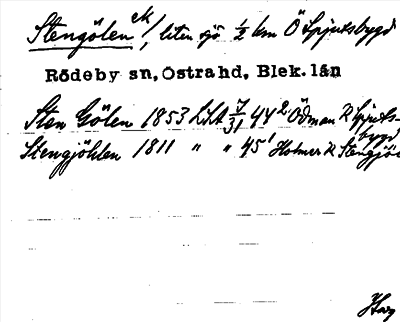 Stengölen ek!, liten sjö ½ km Ö Spjutsbygd
Rödeby sn, Östra hd, Blek. län
Sten Gölen 1853 LSA 7/31 44² Ödman R Spjutsbygd
Stengjöhlen 1811 " " 45¹ Holmer R Stengjö